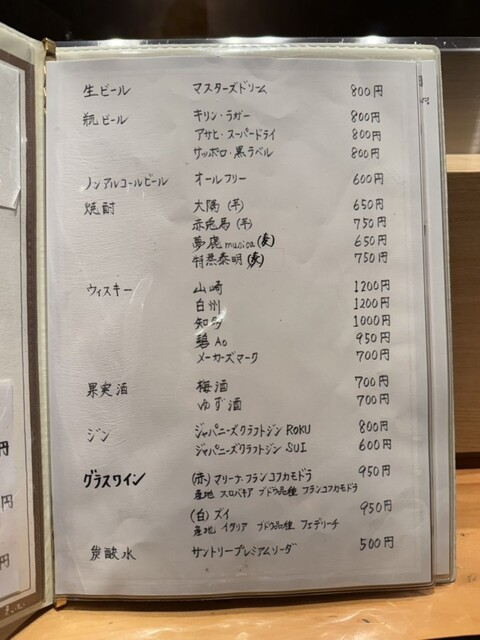 生ビール マスターズドリーム 800円
瓶ビール キリン・ラガー 800円
アサヒ・スーパードライ 800円
サッポロ・黒ラベル 800円
ノンアルコールビール オールフリー 600円
焼酎 大隅(芋) 650円
赤兎馬(芋) 750円
夢鹿musica(麦) 650円
特蒸泰明(麦) 750円
ウィスキー 山崎 1200円
白州 1200円
知多 1000円
碧Ao 950円
メーカーズマーク 700円
果実酒 梅酒 700円
ゆず酒 700円
ジン ジャパニーズクラフトジンROKU 800円
ジャパニーズクラフトジンSUI 600円
グラスワイン (赤)マリーナ・フランコフカモドラ 950円
産地 スロバキア ブドウ品種 フランコフカモドラ
(白)ズイ 950円
産地 イタリア ブドウ品種 フェデリーチ
炭酸水 サントリープレミアムソーダ 500円
円
円
円